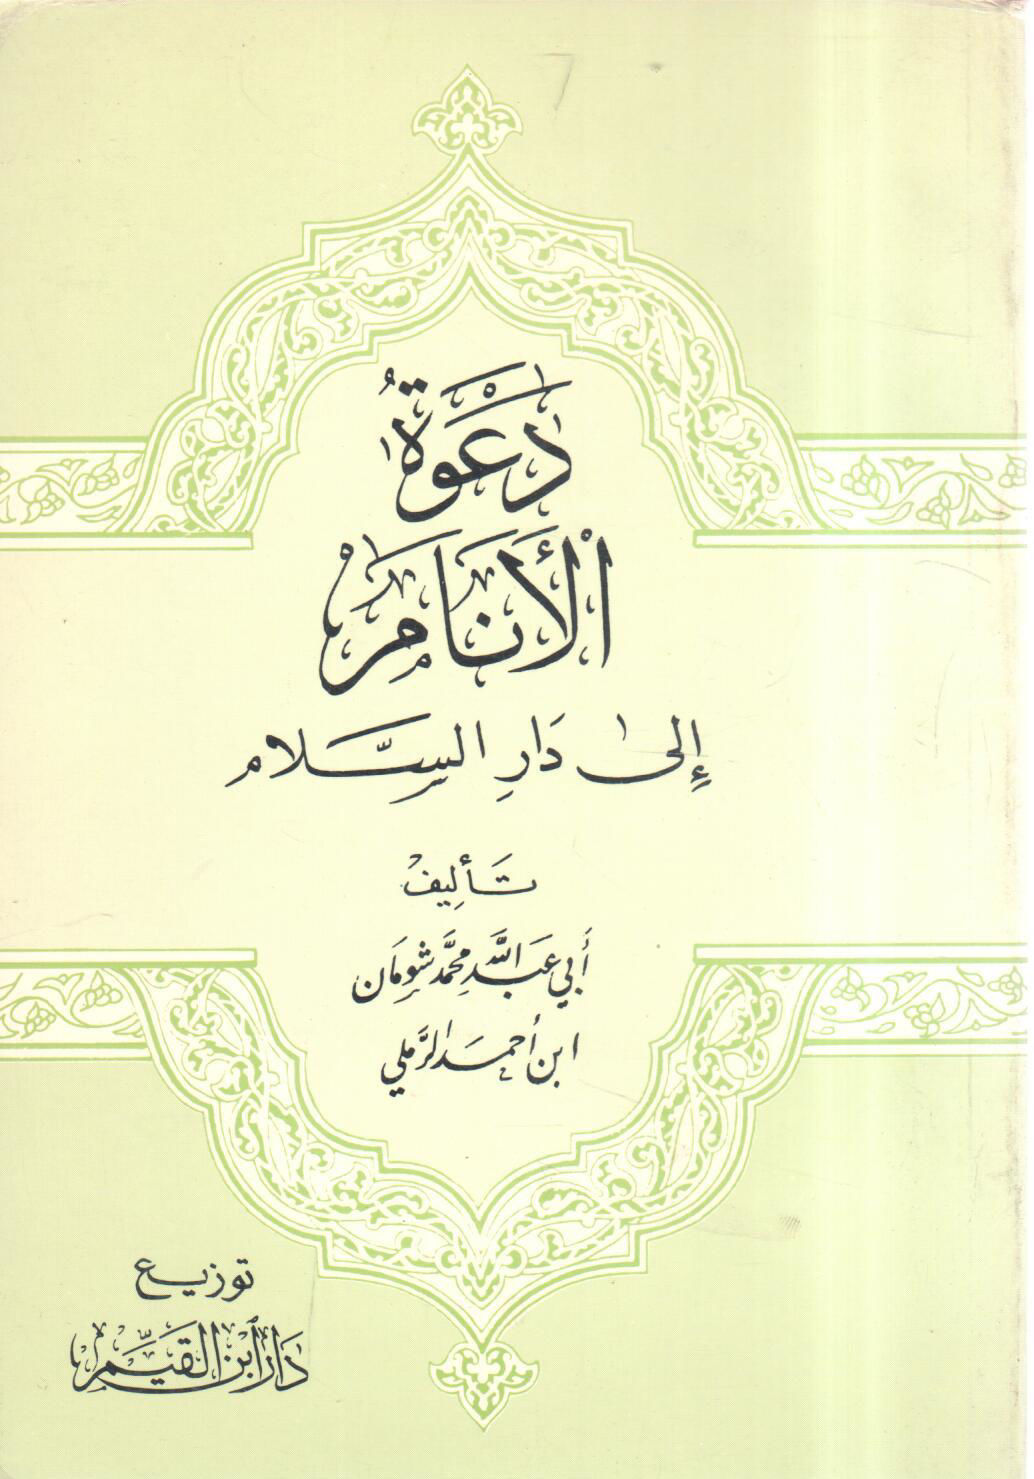 دَعْوَةُ
الْأَنَامِ
إِلىٰ دَارِ السَّلام
تَأليف
أَبي عَبد اللَّه محمَّد شومَان
ابن أحمد الرَّملي
توزيع
دَار ابن القيِّم